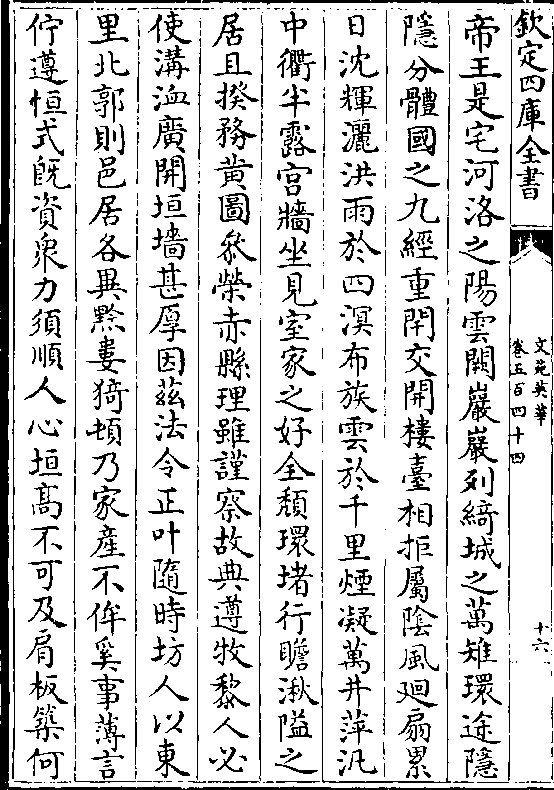 欽定四庫全書
文苑英華
卷五百四十四
十六
帝王是宅河洛之陽雲闕巖巖列綺城之萬雉環途隱
隱分體國之九經重閈交開樓臺相拒屬陰風廻扇累
日沈輝灑洪雨於四溟布族雲於千里煙凝萬井萍汎
中衢半露宫牆坐見室家之好全頽環堵行瞻湫隘之
居且揆務黄圖叅榮赤縣理雖謹察故典遵牧黎人必
使溝洫廣開垣墻甚厚因茲法令正叶隨時坊人以東
里北郭則邑居各異黔婁猗頓乃家産不侔奚事薄言
佇遵恒式旣資衆力須順人心垣髙不可及肩板築何